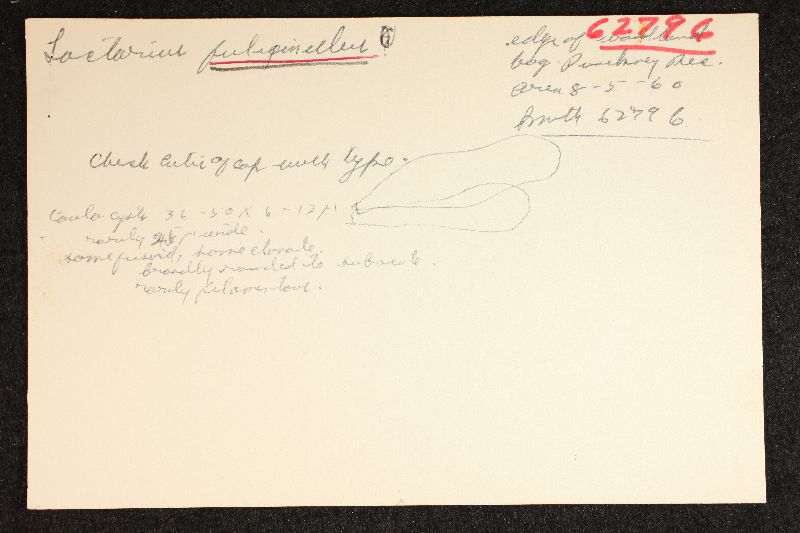 Lactarius fuliginellus 6
62796
edge of woodland
bog. Pinckney Rec.
area 8-5-60
Smith 62796
Check cutis of cap with type.
Caulocystidia 36-50 X 6-12 µ
rarely µ wide.
some fusoid, some clavate.
broadly rounded to subacute.
rarely filamentous.